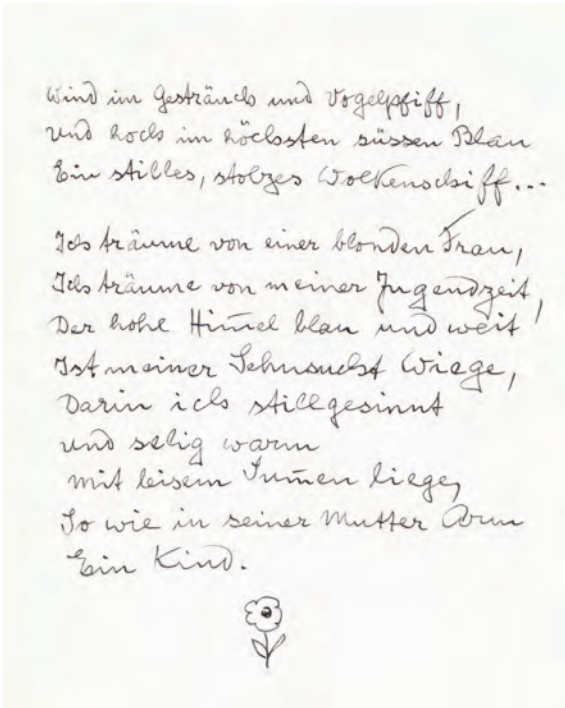 Wind im Gesträuch und Vogelpfiff,
Und hoch im höchsten süssen Blau
Ein stilles, stolzes Wolkenschiff...
Ich träume von einer blonden Frau,
Ich träume von meiner Jugendzeit,
Der hohe Him̄el blau und weit
Ist meiner Sehnsucht Wiege,
Darin ich stillgesinnt
Und selig warm
Mit leisem Sum̄en liege,
So wie in seiner Mutter Arm
Ein Kind.